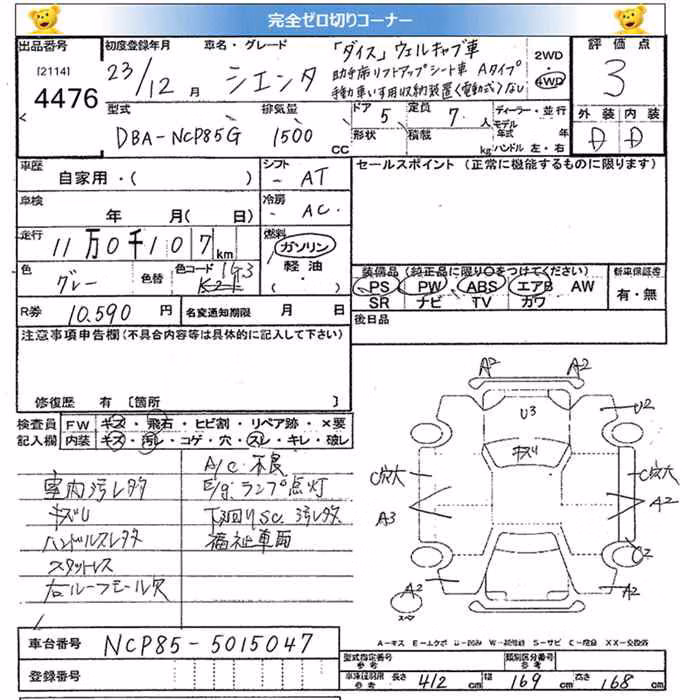 完全ゼロ切りコーナー
出品番号 初度登録年月 車名・グレード 「ダイス」ウェルキャブ車 2WD 評価点
[2114] 23/12月 シエンタ 助手席リフトアップシート車 Aタイプ 4WD 3
4476 手動車いす用収納装置(電動式)なし
型式 排気量 ドア 5 定員 7 人 ディーラー・並行 外装 内装
DBA-NCP85G 1500 CC 形状 積載 kg モデル年式 年 D D
ハンドル 左・右
車歴 シフト セールスポイント (正常に機能するものに限ります)
自家用・( ) - AT
車検 冷房
年 月( 日) - AC
走行 11万0千107km 燃料 ガソリン
軽油
・( )
色 グレー 色替 色コード 1G3
K21
装備品 (純正品に限り○をつけてください) 新車保証書
PS PW ABS エアB AW 有・無
SR ナビ TV カワ
R券 10.590 円 名変通知期限 月 日 後日品
注意事項申告欄(不具合内容等は具体的に記入して下さい)
修復歴 有 〔箇所 〕
検査員 FW キズ・飛石・ヒビ割・リペア跡・×要
記入欄 内装 キズ・汚レ・コゲ・穴・スレ・キレ・破レ
A/C不良
車内汚レ多 E/gランプ点灯
キズU 下回りSC.汚レ多
ハンドルスレ多 福祉車両
スタットレス
右ルーフモール欠
A2 A2
U3 U2
キズU
C穴大 C穴大
A3 A2
C2
A2 A2
スペア
車台番号 NCP85-5015047
登録番号
A-キズ E-エクボ U-凹み W-補修跡 S-サビ C-腐食 XX-交換済
型式指定番号 参考 類別区分番号 参考
車検証明用 参考 長さ 412 cm 幅 169 cm 高さ 168 cm